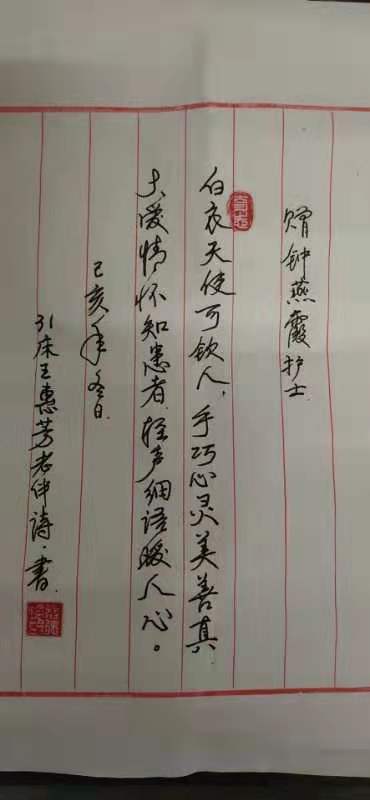 赠钟燕霞护士
白衣天使可钦人，手巧心灵美善真
大爱情怀知患者，轻声细语暖人心。
己亥年冬日
31床王惠芳老伴诗·书